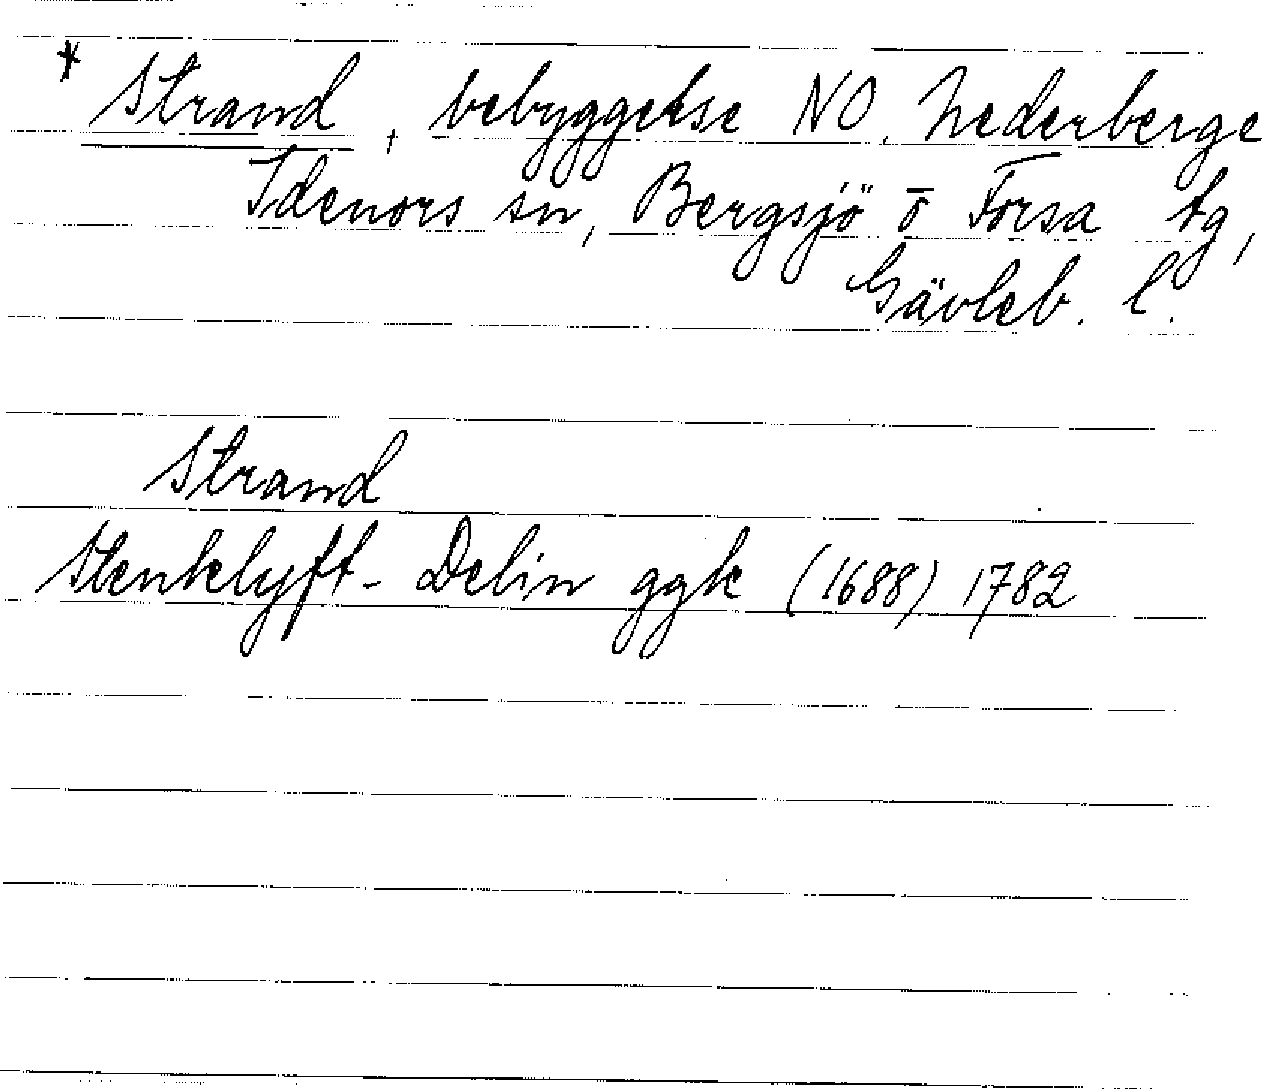 * Strand, bebyggelse NO. Nederberge
Idenors sn, Bergsjö o Forsa tg,
Gävleb. l.
Strand
Stenklyft - Delin ggk (1688) 1782